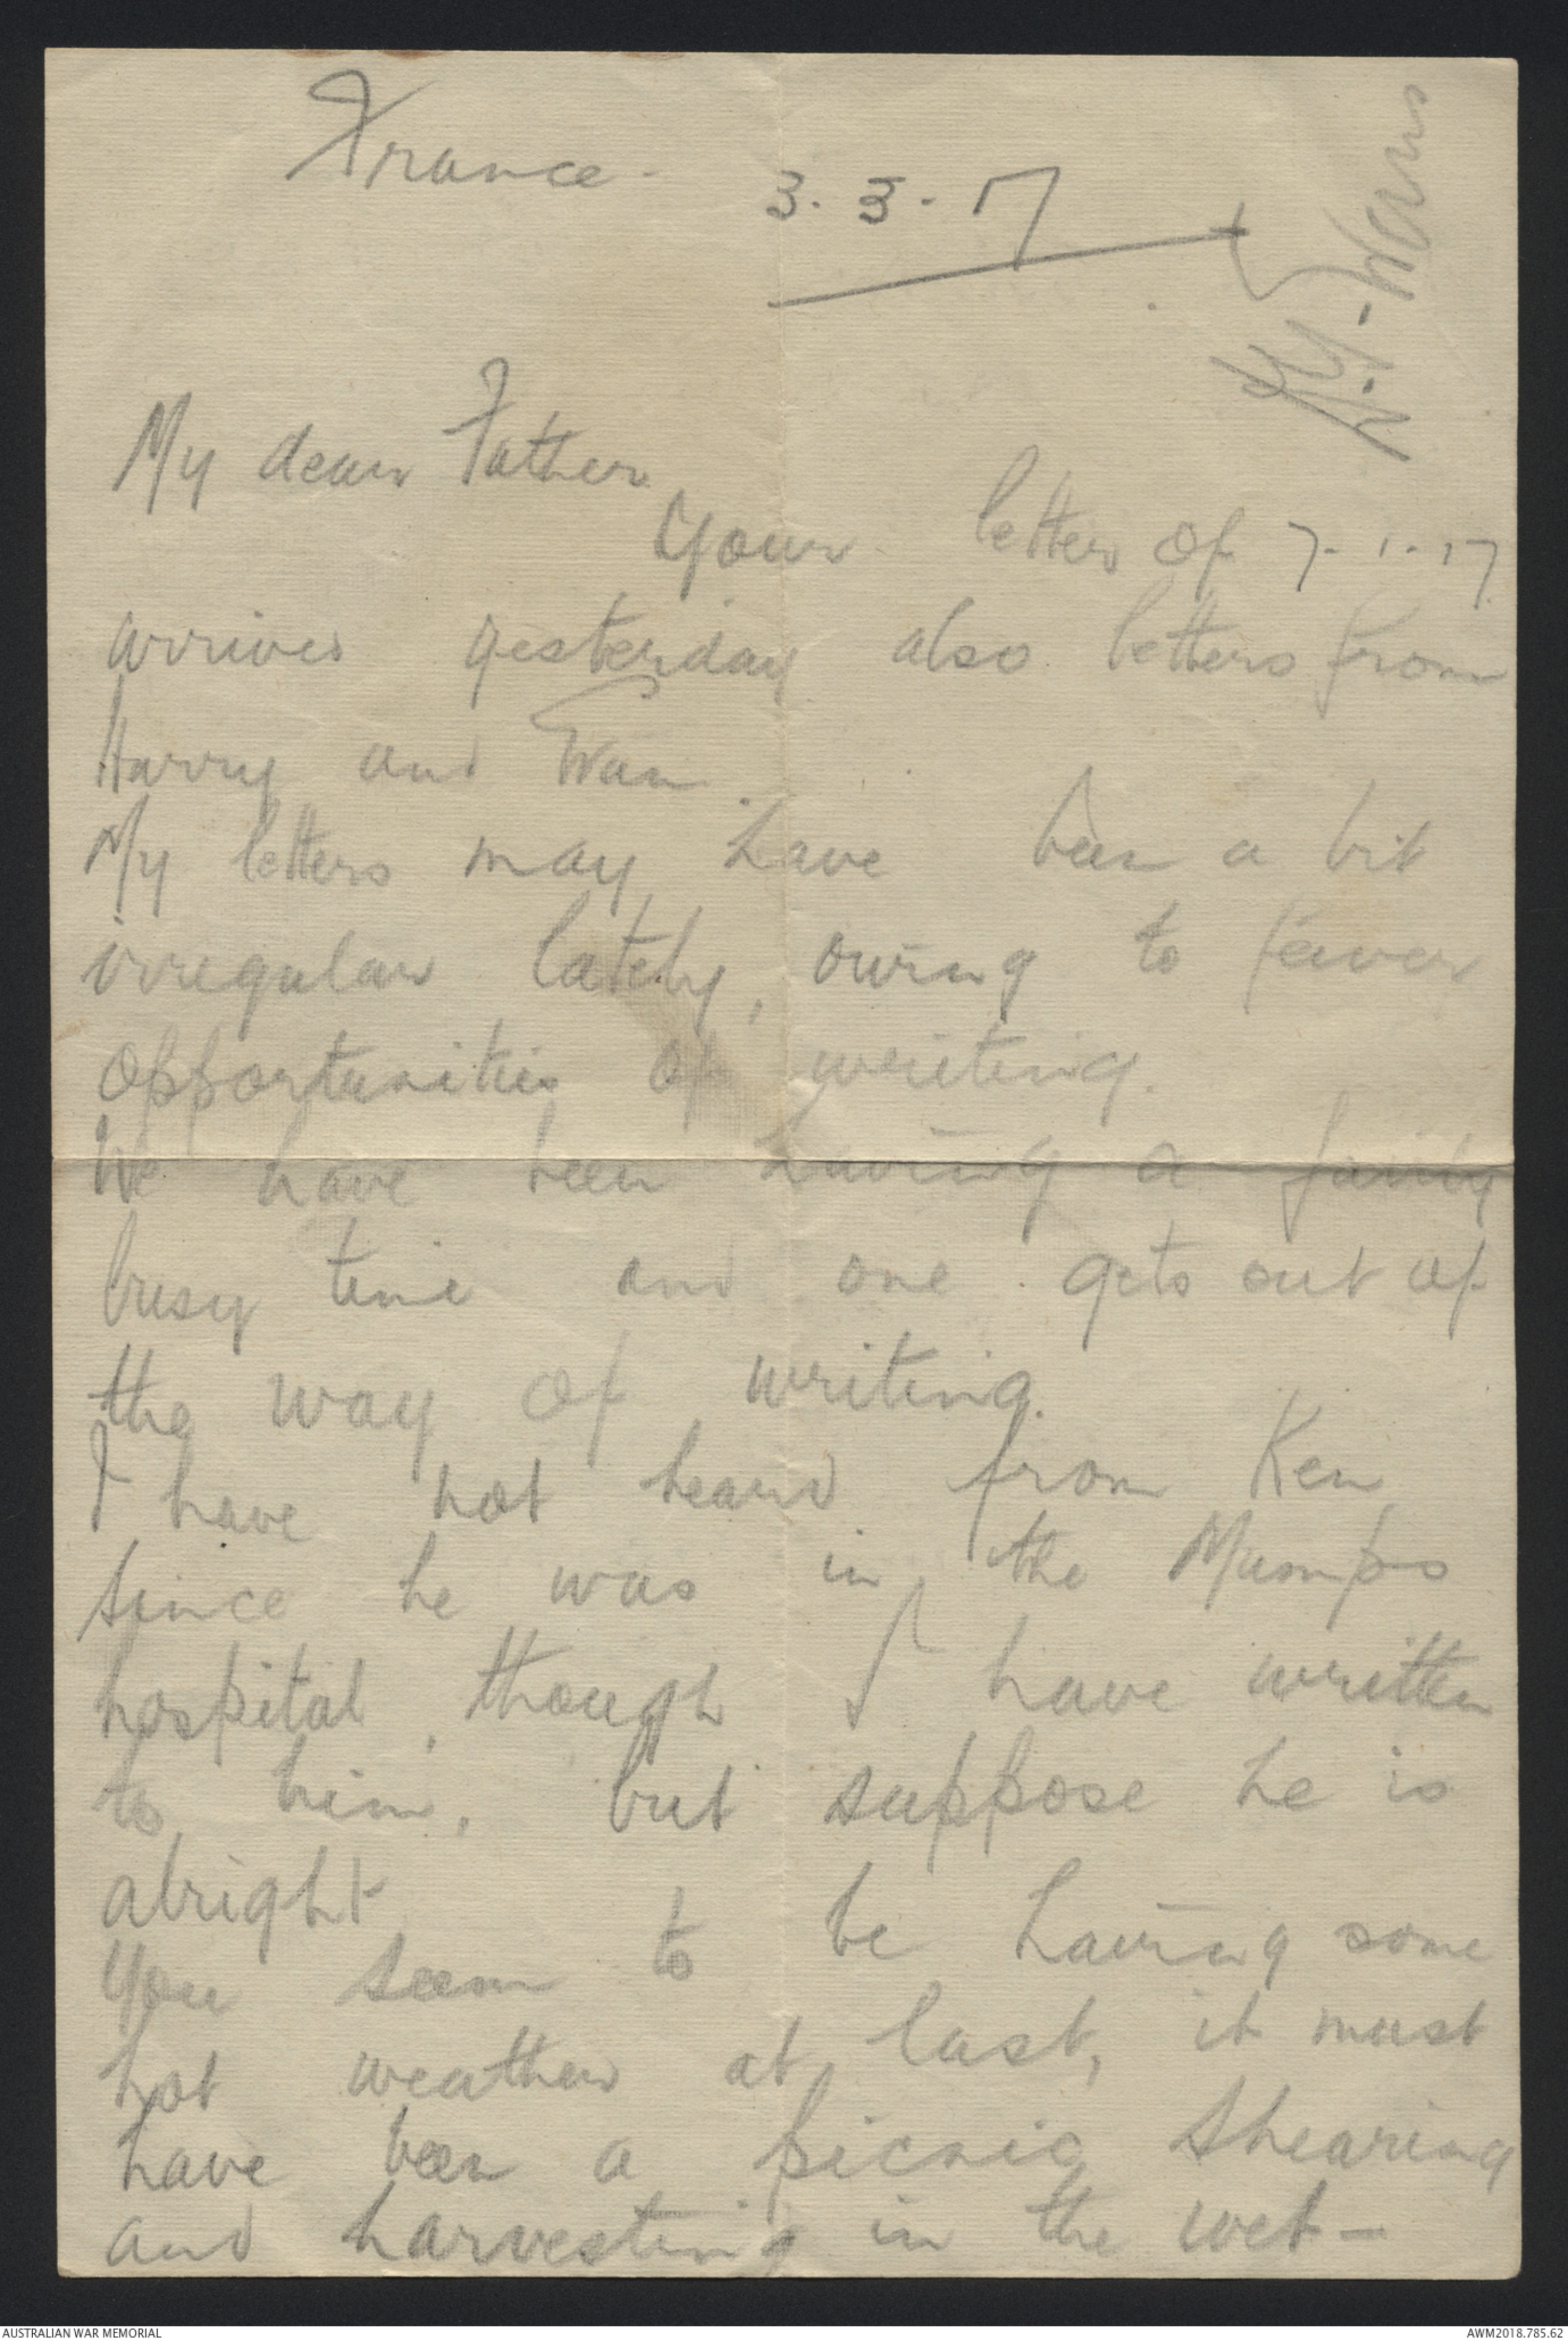 France.
3. 3. 17
My dear Father
Your letter of 7. 1. 17
arrived yesterday also letters from
Harry and Fran.
My letters may have been a bit
irregular lately, owing to fewer
opportunities of writing.
We have been having a fairly
busy time and one gets out of
the way of writing.
I have not heard from Ken
since he was in the Mumps
hospital, though I have written
to him, but suppose he is
alright
You seem to be having some
hot weather at last, it must
have been a picnic shearing
and harvesting in the wet -
AUSTRALIAN WAR MEMORIAL
AWM2018.785.62